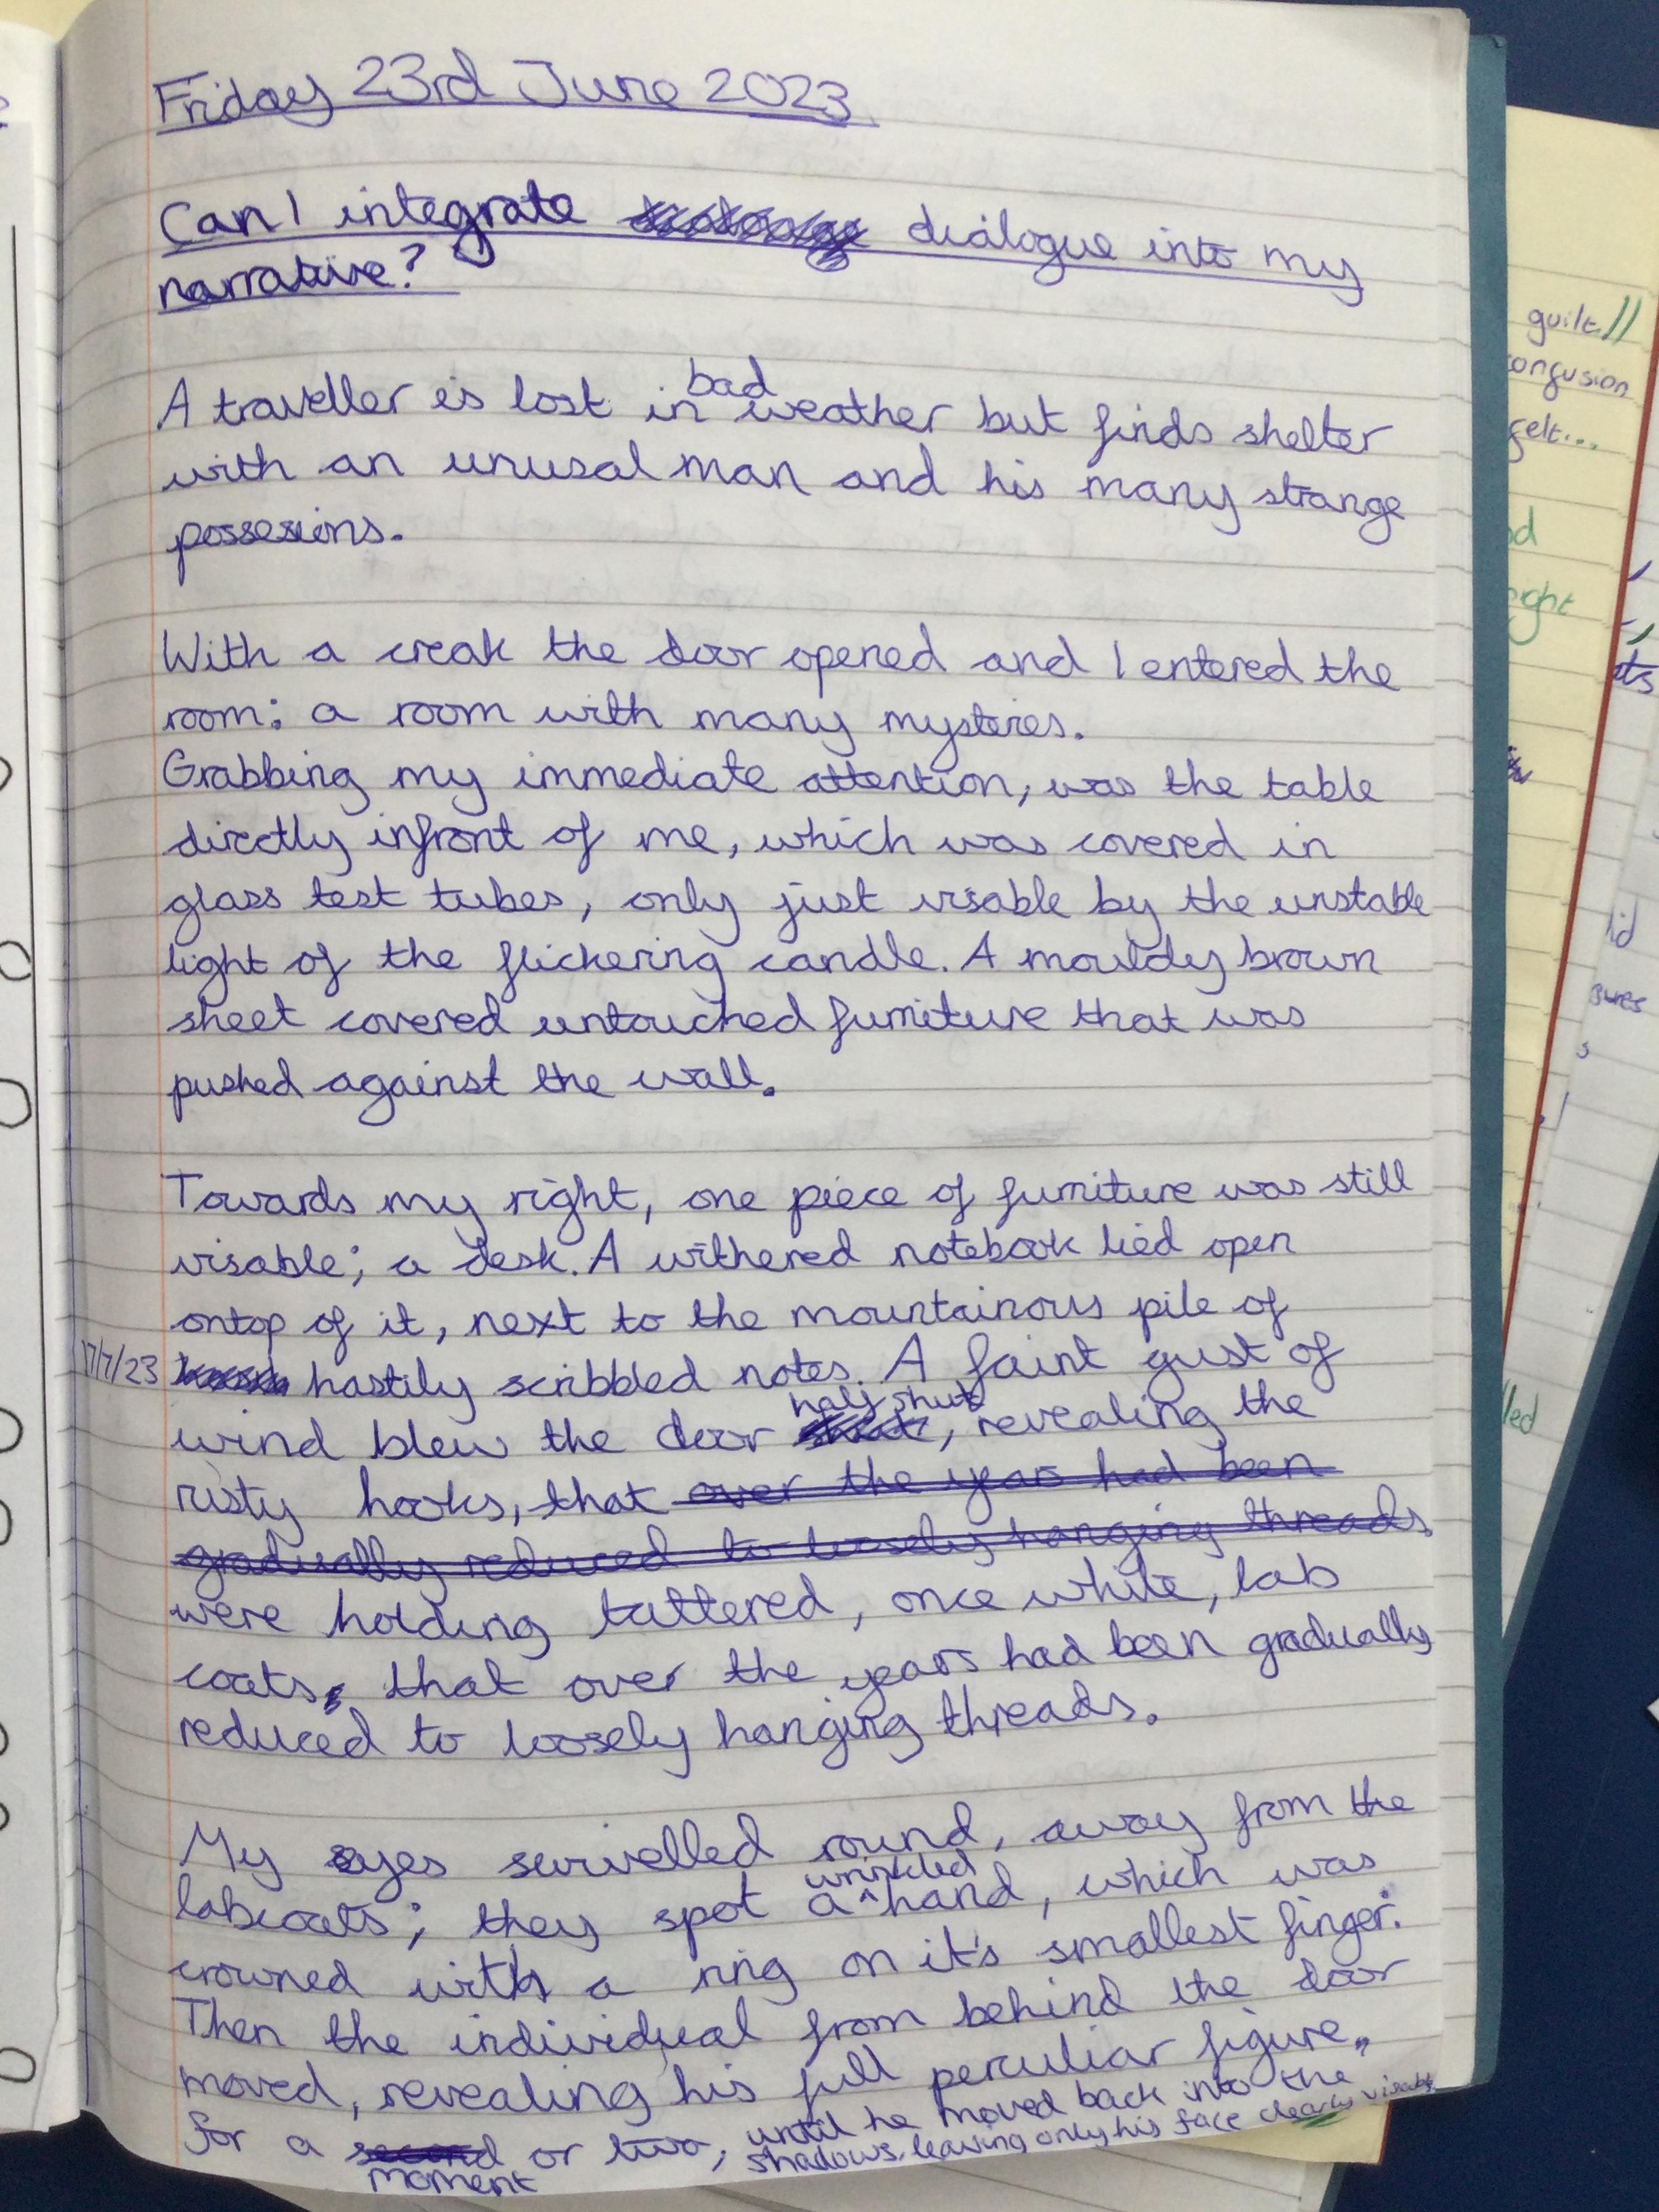 Friday 23rd June 2023
Can I integrate dialogue into my
narrative?
A traveller is lost in bad weather but finds shelter
with an unusal man and his many strange
possesions.
With a creak the door opened and I entered the
room: a room with many mysteries.
Grabbing my immediate attention, was the table
directly infront of me, which was covered in
glass test tubes, only just visable by the unstable
light of the flickering candle. A mouldy brown
sheet covered untouched furniture that was
pushed against the wall.
Towards my right, one piece of furniture was still
visable; a desk. A withered notebook lied open
ontop of it, next to the mountainous pile of
17/7/23 hastily scribbled notes. A faint gust of
wind blew the door half shut, revealing the
rusty hooks, that over the years had been
gradually reduced to loosely hanging threads.
were holding tattered, once white, lab
coats, that over the years had been gradually
reduced to loosely hanging threads.
My eyes survelled round, away from the
labcoats; they spot a wrinkled hand, which was
crowned with a ring on it's smallest finger.
Then the individual from behind the door
moved, revealing his full perculiar figure,
for a second moment or two, until he moved back into the
shadows, leaving only his face clearly visable
guilt //
confusion
felt...